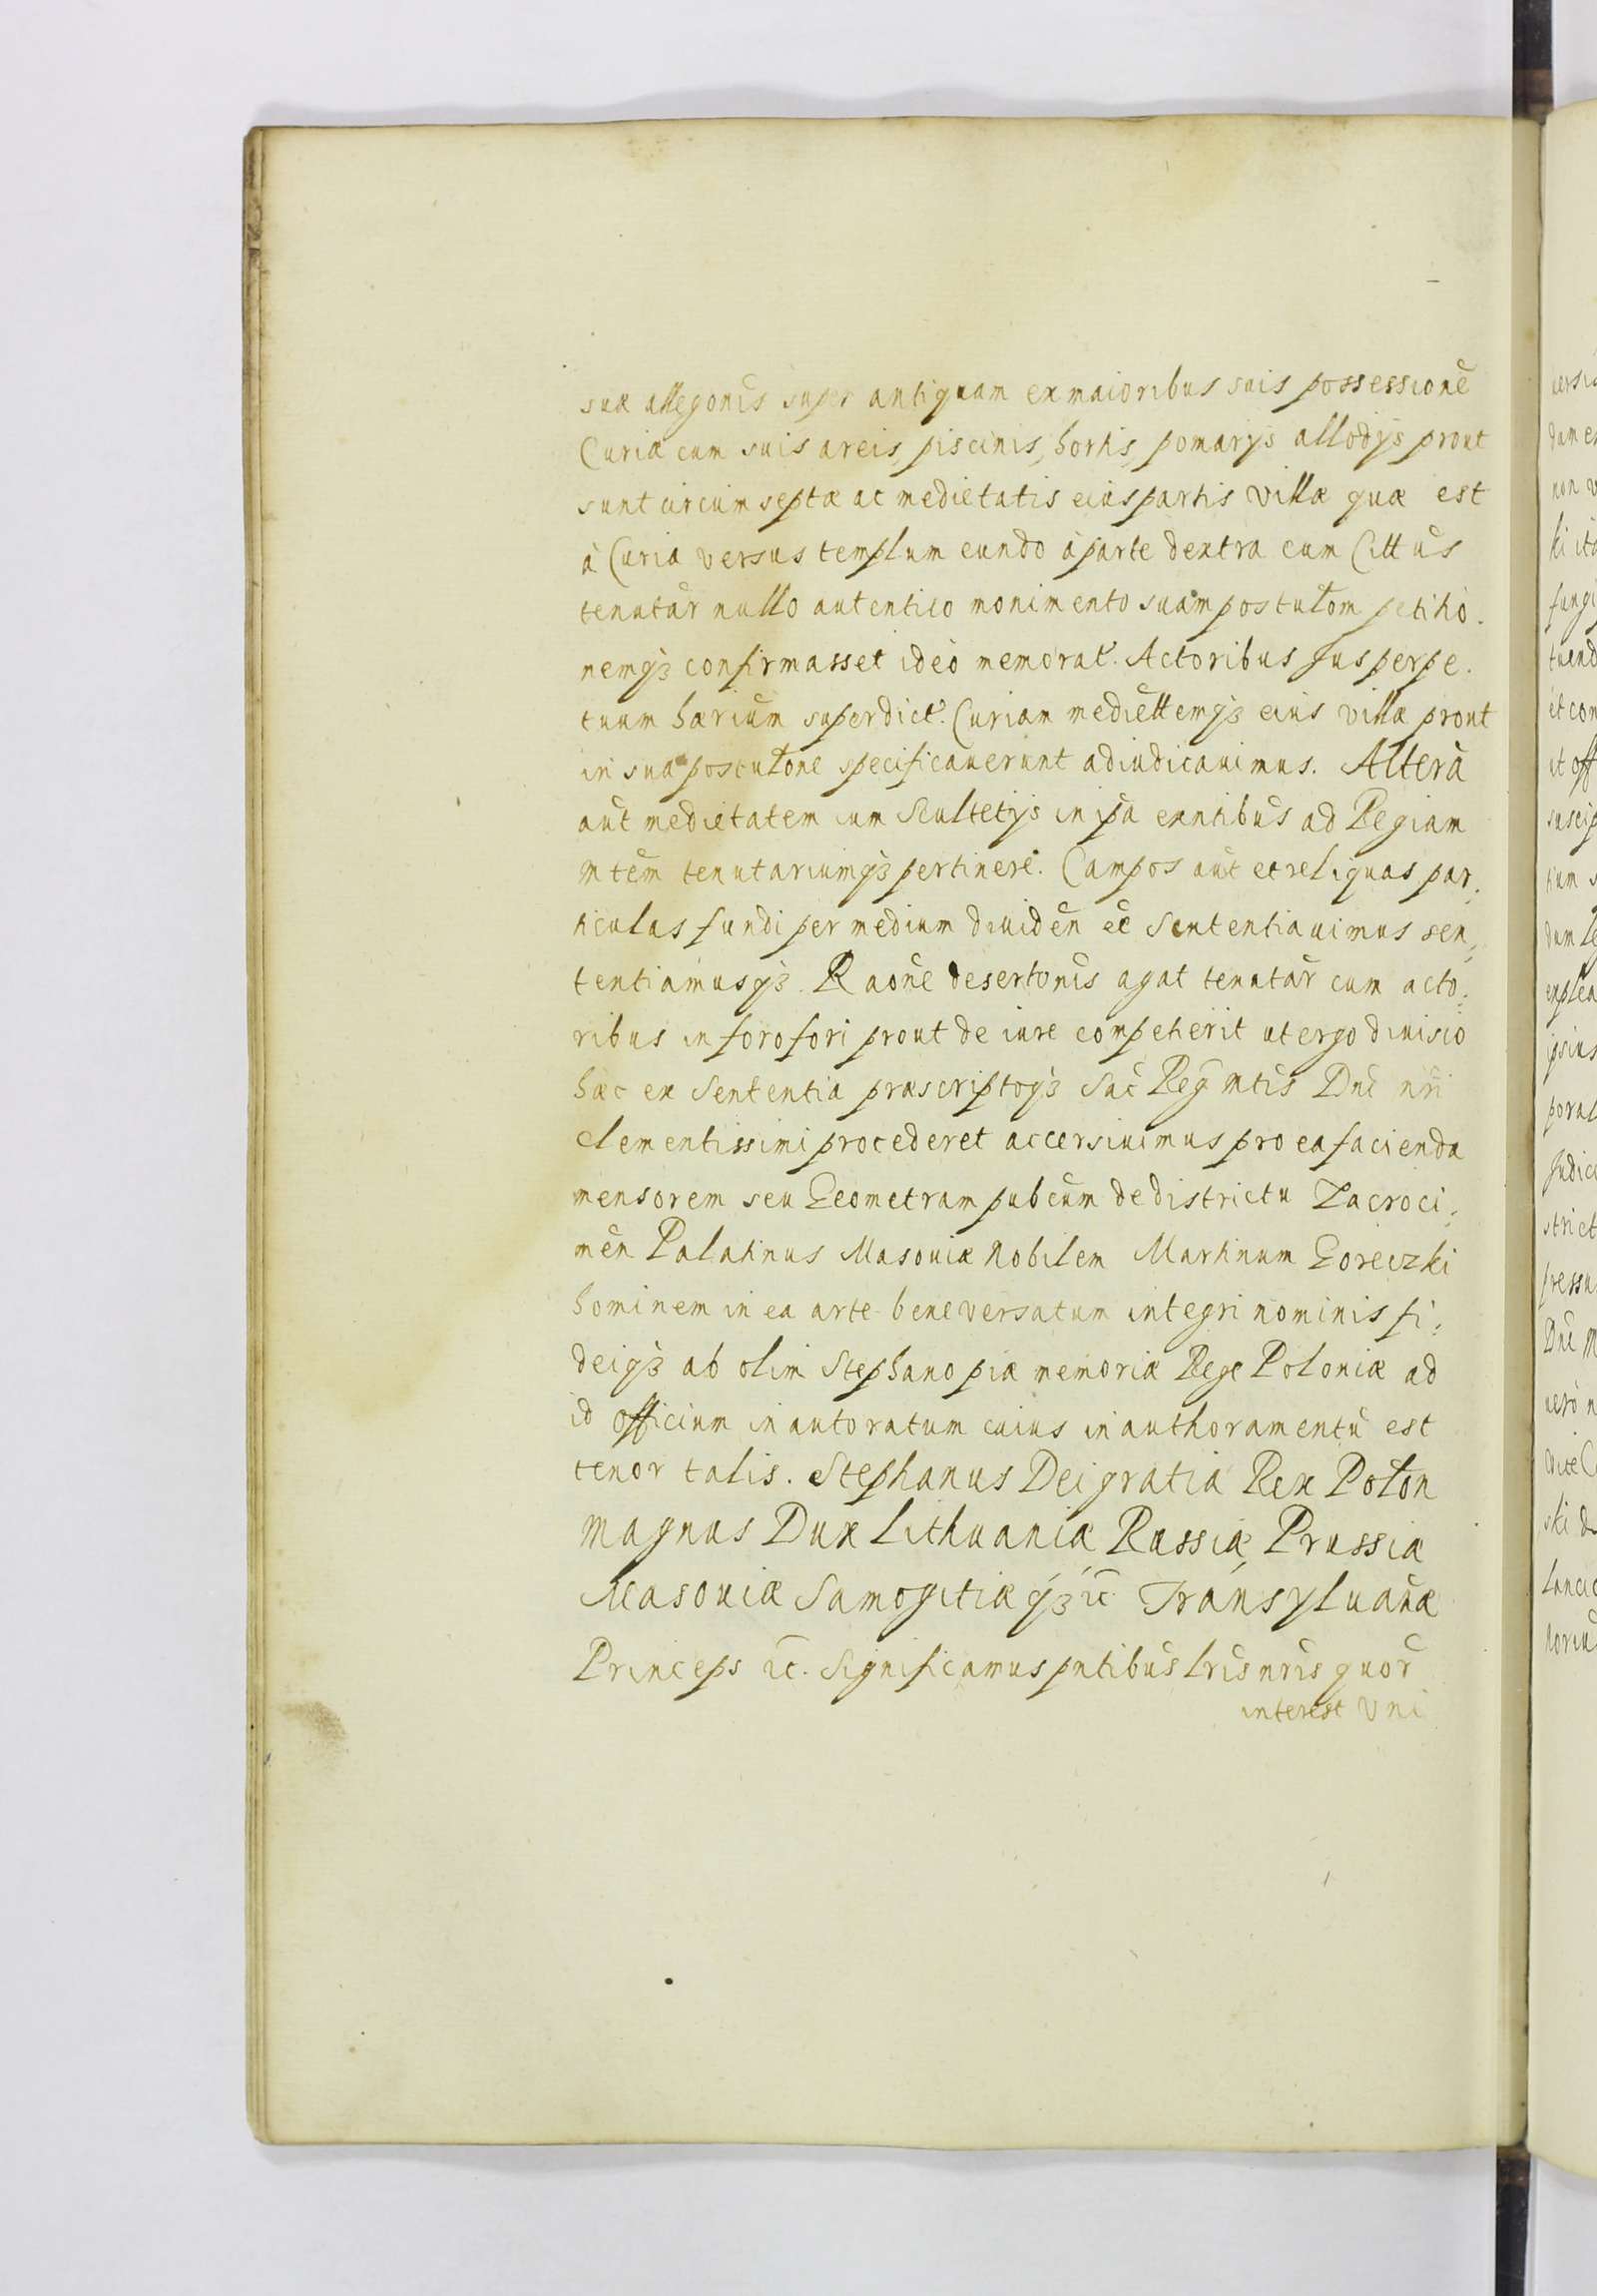 suæ allegonis super antiquam ex maioribus suis possessionē
Curiæ cum suis areis, piscinis, hortis, pomarÿs allodÿs prout
sunt circum septæ ac medietatis eius partis villæ quæ est
à Curia versus templum eundo à parte dextra cum Cittūs
tenutār nullo autentico monimento suam postulōm petitio.
nemqꝫ confirmasset ideò memorat. Actoribus Jus perpe.
tuum hærium superdict. Curiam mediettemqꝫ eius villæ prout
in sua postulōne specificauerunt adiudicauimus. Alterā
aūt medietatem cum Scultetÿs in ip̄a exntibūs ad Regiam
Mtēm tenutariumqꝫ pertinere. Campos aūt et reliquas par,
ticulas fundi per medium diuidēn eē Sententiauimus sen,
tentiamusqꝫ. Raōne desertonis agat tenutār cum acto:
ribus in foro fori prout de iure competierit ut ergo diuisio
hæc ex Sententia præscriptoqꝫ Sac̄ Reg̃ Mtīs Dnī nr̄i
clementissimi procederet accersiuimus pro ea facienda
mensorem seu Geometram pubcūm de districtu Zacroci:
mēn Palatinus Masouiæ Nobilem Martinum Goreczki
hominem in ea arte bene versatum integri nominis fi:
deiqꝫ ab olim Stephano piæ memoriæ Rege Poloniæ ad
id officium inautoratum cuius inauthoramentū est
tenor talis. Stephanus Dei gratia Rex Polon
Magnus Dux Lithuaniæ Russiæ, Prussiæ
Masouiæ Samogitiæqꝫ ꝛc̄ Transyluanæ
Princeps ꝛc̄. Significamus pntibūs lrīs nrīs quor̄
interest Vni